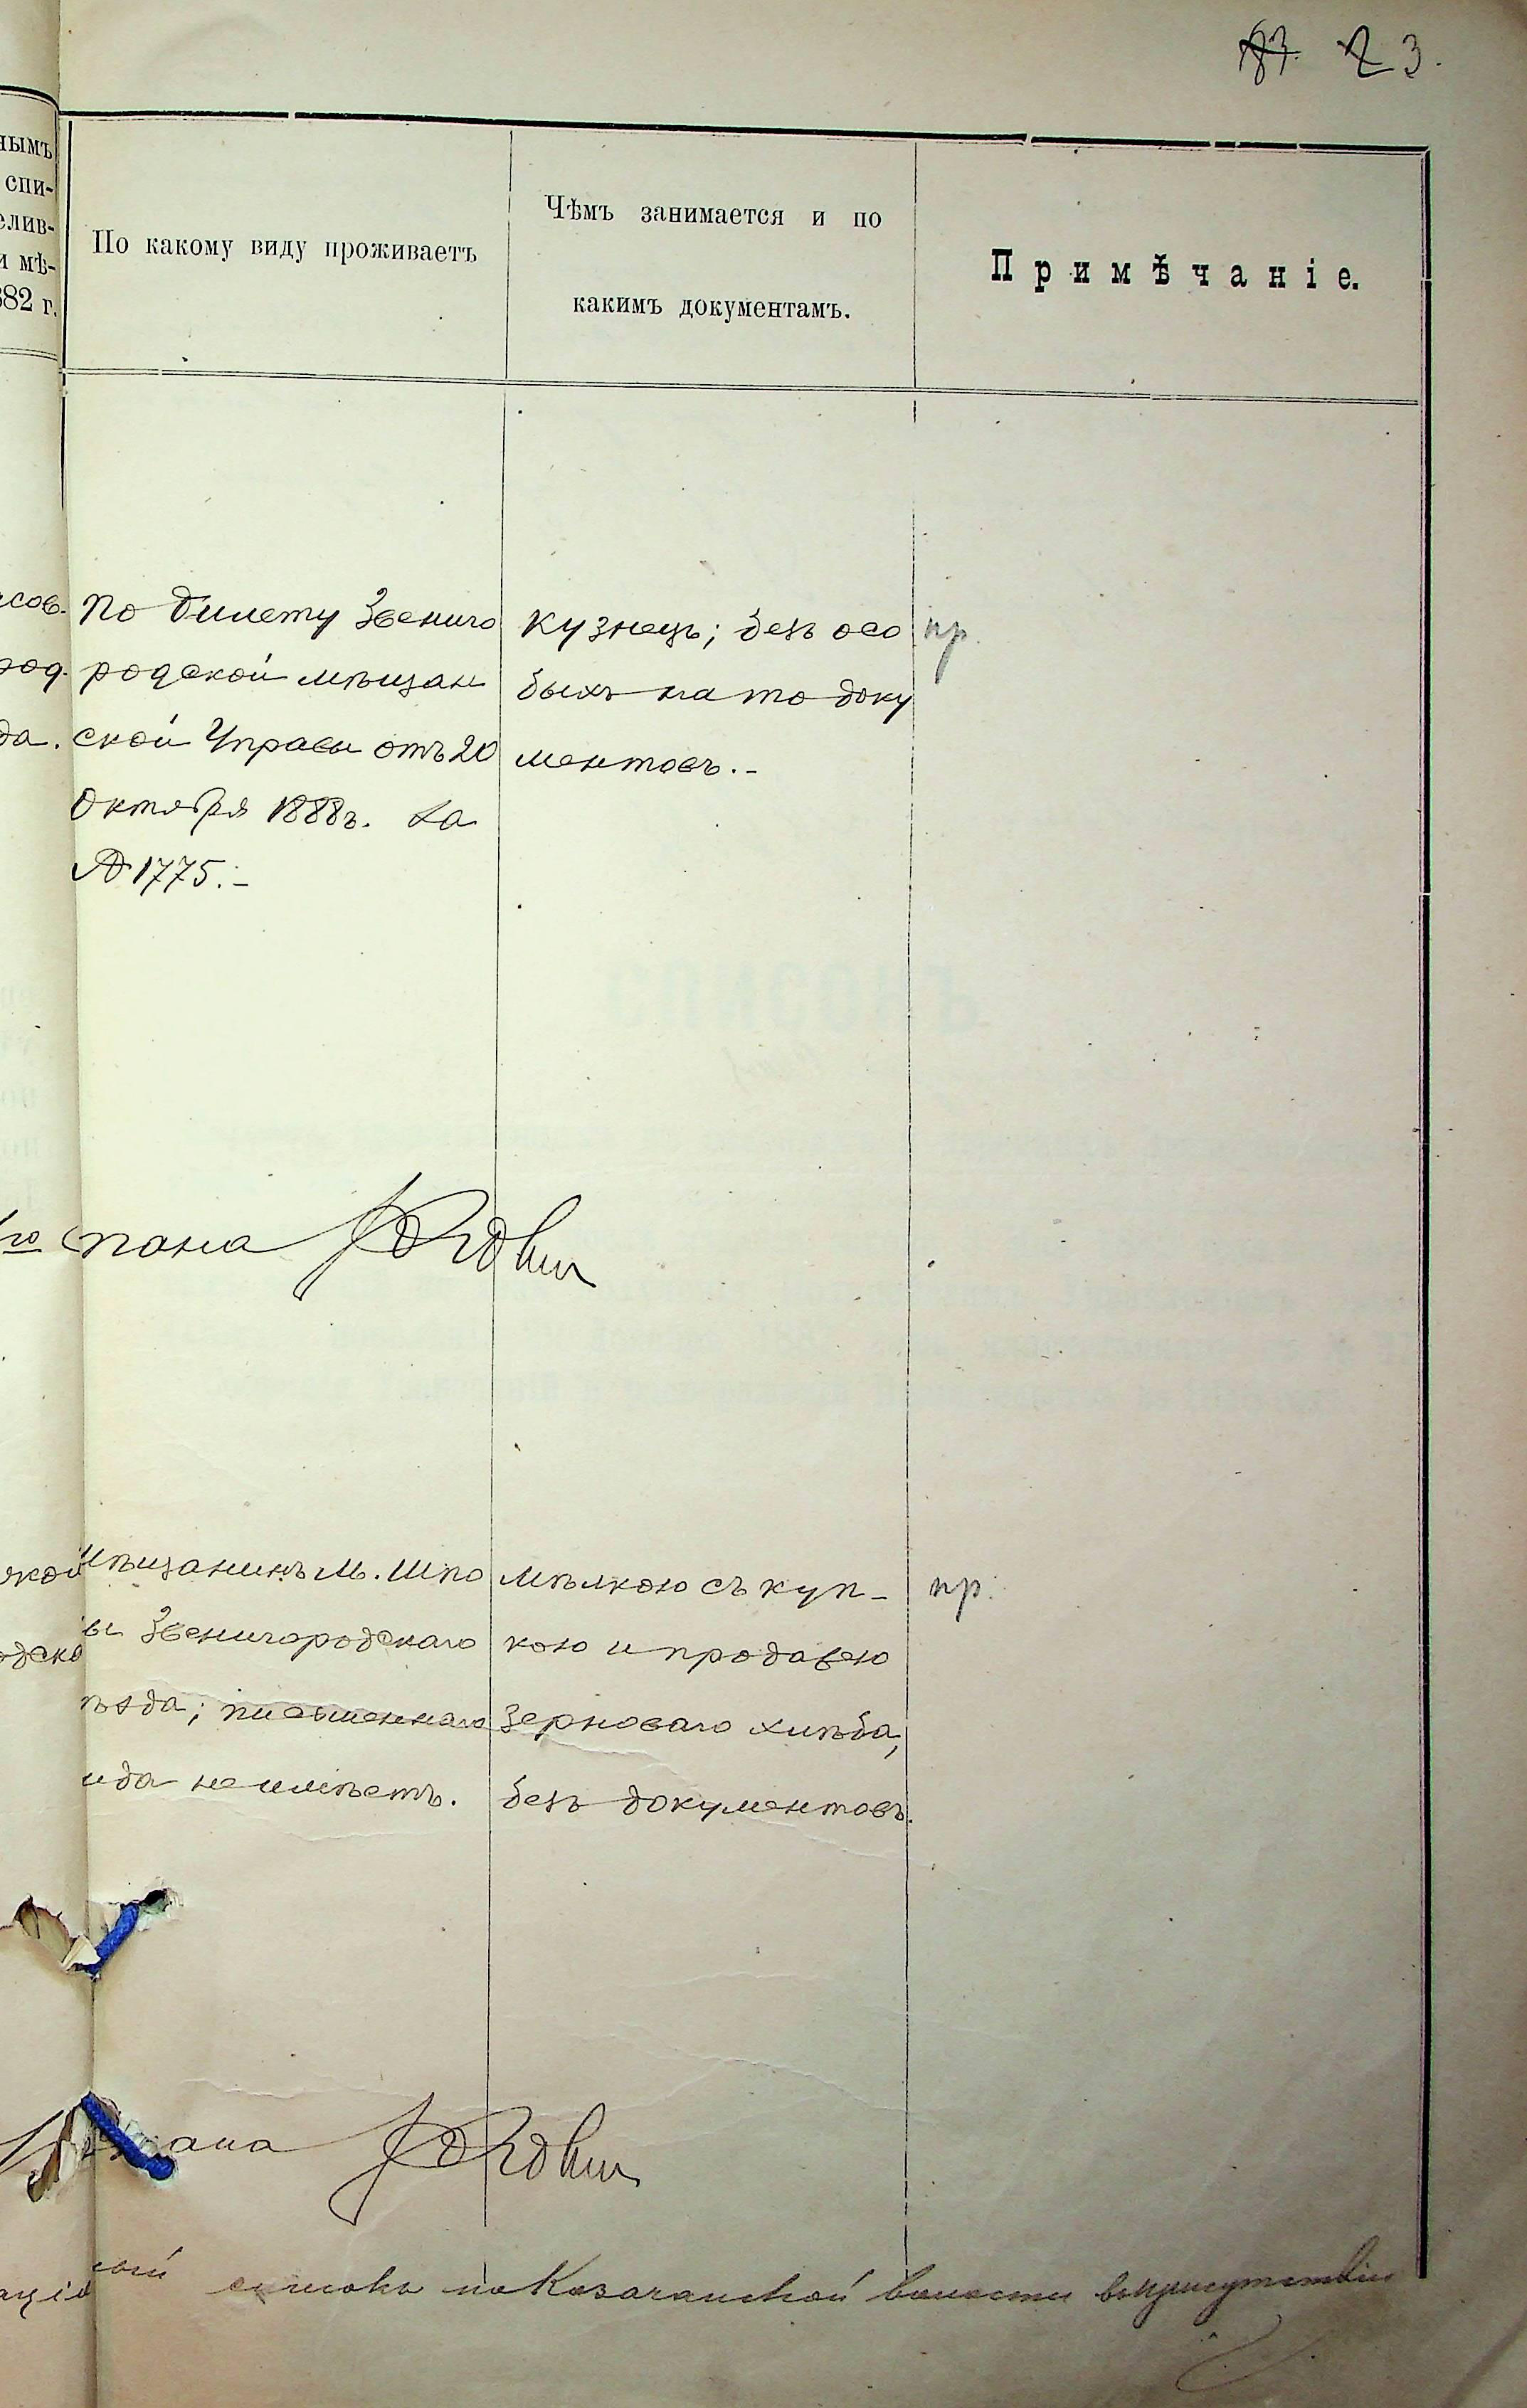 23.
нымъ
спи-
елив-
и мѣ-
882 г.
По какому виду проживаетъ
Чѣмъ занимается и по
какимъ документамъ.
Примѣчаніе.
По билету Звениго
родской мѣщан
ской Управы отъ 20
Октября 1888 г. за
№ 1775.-
кузнецъ; безъ осо
быхъ на то доку
ментовъ.-
пр.
го стана
мѣщанинъ м. Шпо
ы Звенигородскаго
ѣзда; письменнаго
ида неимѣетъ.
мѣлкою съ куп-
кою и продажею
зерноваго хлѣба,
безъ документовъ.
пр.
ана
ный списокъ по Казачанской волости въ присутствіи